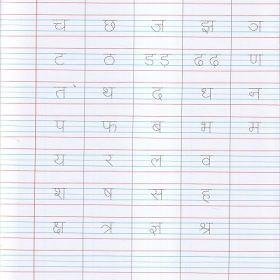 च छ ज झ ञ
ट ठ ड ड़ ढ ढ़ ण
त थ द ध न
प फ ब भ म
य र ल व
श ष स ह
क्ष त्र ज्ञ श्र